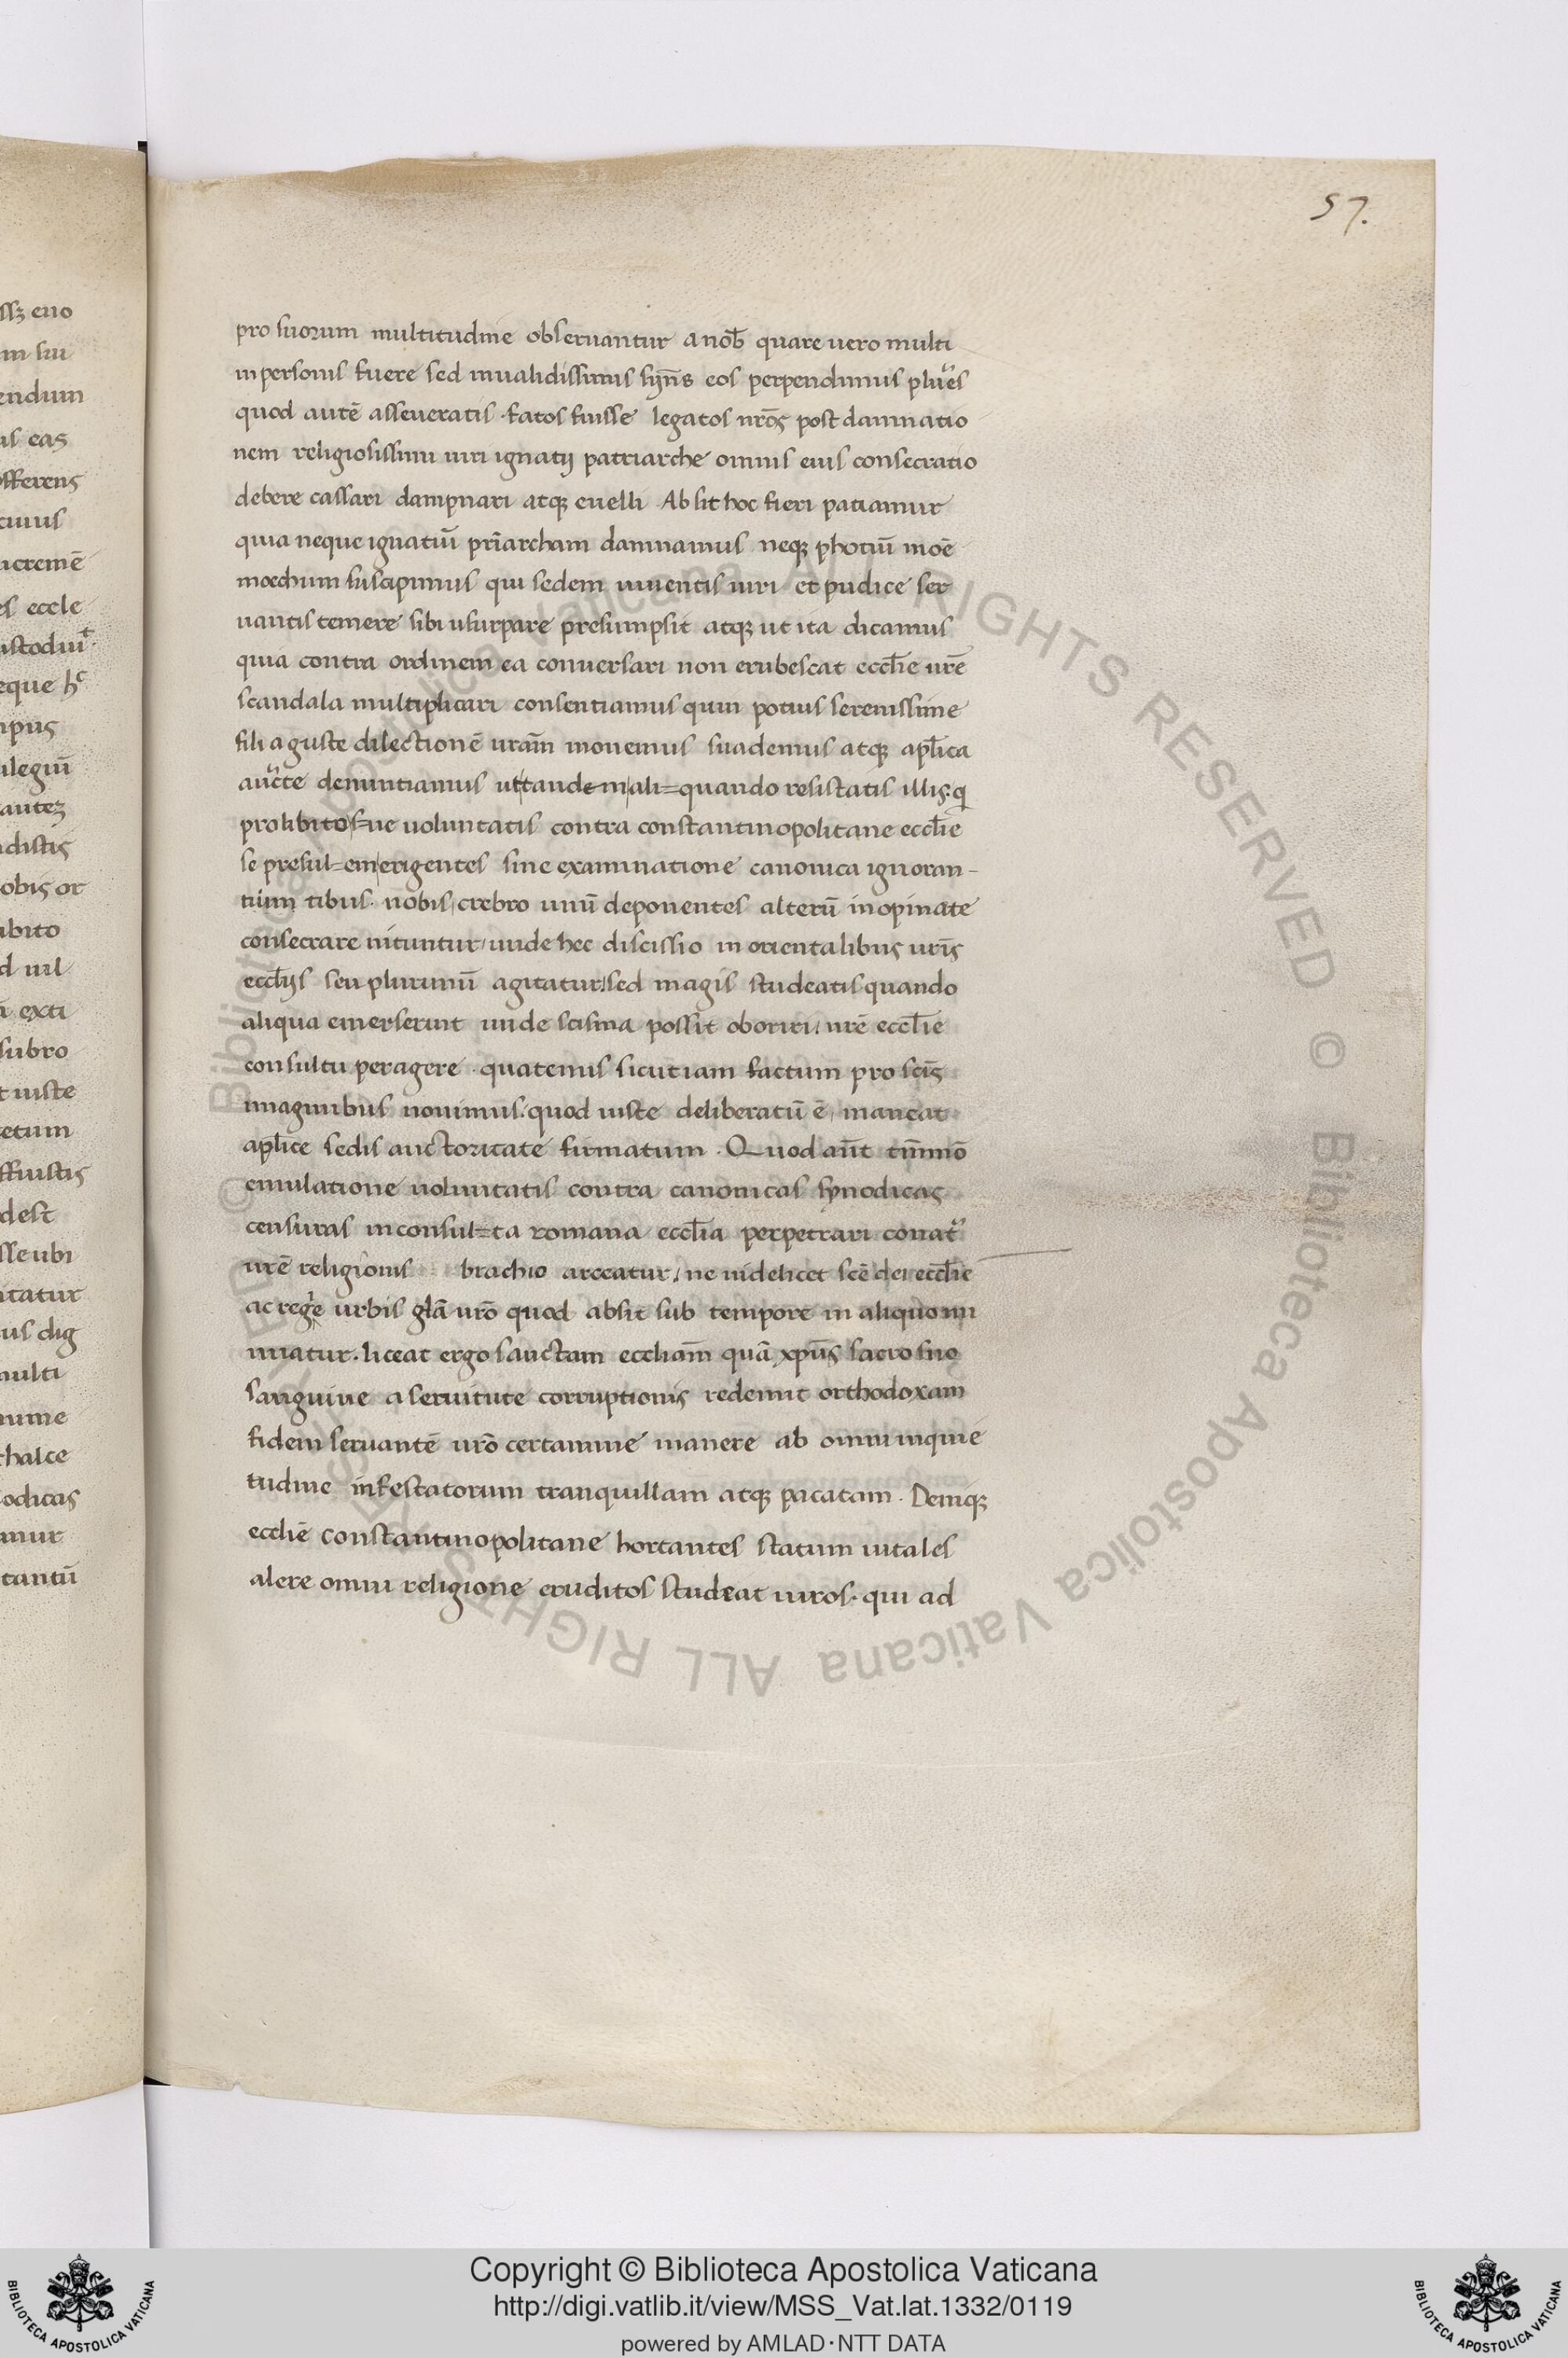 57.
ssꝫ euo
m sui
endum
us eas
offerens
cuius
acremē
es eccle
ustodiuᵗ
eque hᶜ
mpus
uilegiū
autez
adistis
nobis or
ubito
d uil
exti
subro
t iuste
cetum
ffuistis
dest
sse ubi
ntatur
us dig
multi
nume
chalce
odicas
amur
tantū
pro suorum multitudine obseruantur a nob̄ quare uero multi
in personis fuere sed inualidissimis syn̄s eos perpendimus plures
quod autē asseueratis · fatos fuisse legatos nr̄os post damnatio
nem religiosissimi uiri ignatij patriarche omnis eius consecratio
debere cassari dampnari atqꝫ euelli Ab sit hoc fieri patiamur
quia neque ignatiū pr̄iarcham damnamus neqꝫ photiū moē
moechum suscipimus qui sedem uiuentis uiri et pudice ser
uantis temere sibi usurpare presumpsit atqꝫ ut ita dicamus
quia contra ordinem ea conuersari non erubescat eccl̄ie ur̄e
scandala multiplicari consentiamus quin potius serenissime
fili aguste dilectionē uram̄ monemus suademus atqꝫ apl̄ica
auc̄te denuntiamus ut|tandem|ali=quando resistatis illis: q
prolibitos=ue uoluntatis contra constantinopolitane eccl̄ie
se presul=em|erigentes sine examinatione canonica ignoran-
tium tibus · nobis, crebro unū deponentes alterū inopinate
consecrare nituntur, unde hec discissio in orientalibus ur̄is
eccl̄ijs seu plurimū agitatur, sed magis studeatis quando
aliqua emerserint unde scisma possit oboriri, nr̄e eccl̄ie
consultu peragere · quatenus sicut iam factum pro scīs
imaginibus nouimus. quod iuste deliberatū ē, maneat
apl̄ice sedis auctoritate firmatum · Quod aūt tīmō
emulatione uoluntatis contra canonicas synodicas
censuras inconsul=ta romana eccl̄ia perpetrari conat᷑
ur̄e religionis brachio arceatur, ne uidelicet scē dei eccl̄ie
ac regie urbis glā urō quod absit sub tempore in aliquo mi
nuatur · liceat ergo sanctam eccliam̄ quā xp̄us sacro suo
sanguine a seruitute corruptionis redemit orthodoxam
fidem seruantē urō certamine manere ab omni inquie
tudine infestatorum tranquillam atqꝫ pacatam . Deniqꝫ
eccliē constantinopolitane hortantes statum uitales
alere omni religione eruditos studeat uiros · qui ad
© Biblioteca Apostolica Vaticana ALL RIGHTS RESERVED © Biblioteca Apostolica Vaticana ALL RIGHTS RESERVED
BIBLIOTECA APOSTOLICA VATICANA
Copyright © Biblioteca Apostolica Vaticana
http://digi.vatlib.it/view/MSS_Vat.lat.1332/0119
powered by AMLAD·NTT DATA
BIBLIOTECA APOSTOLICA VATICANA